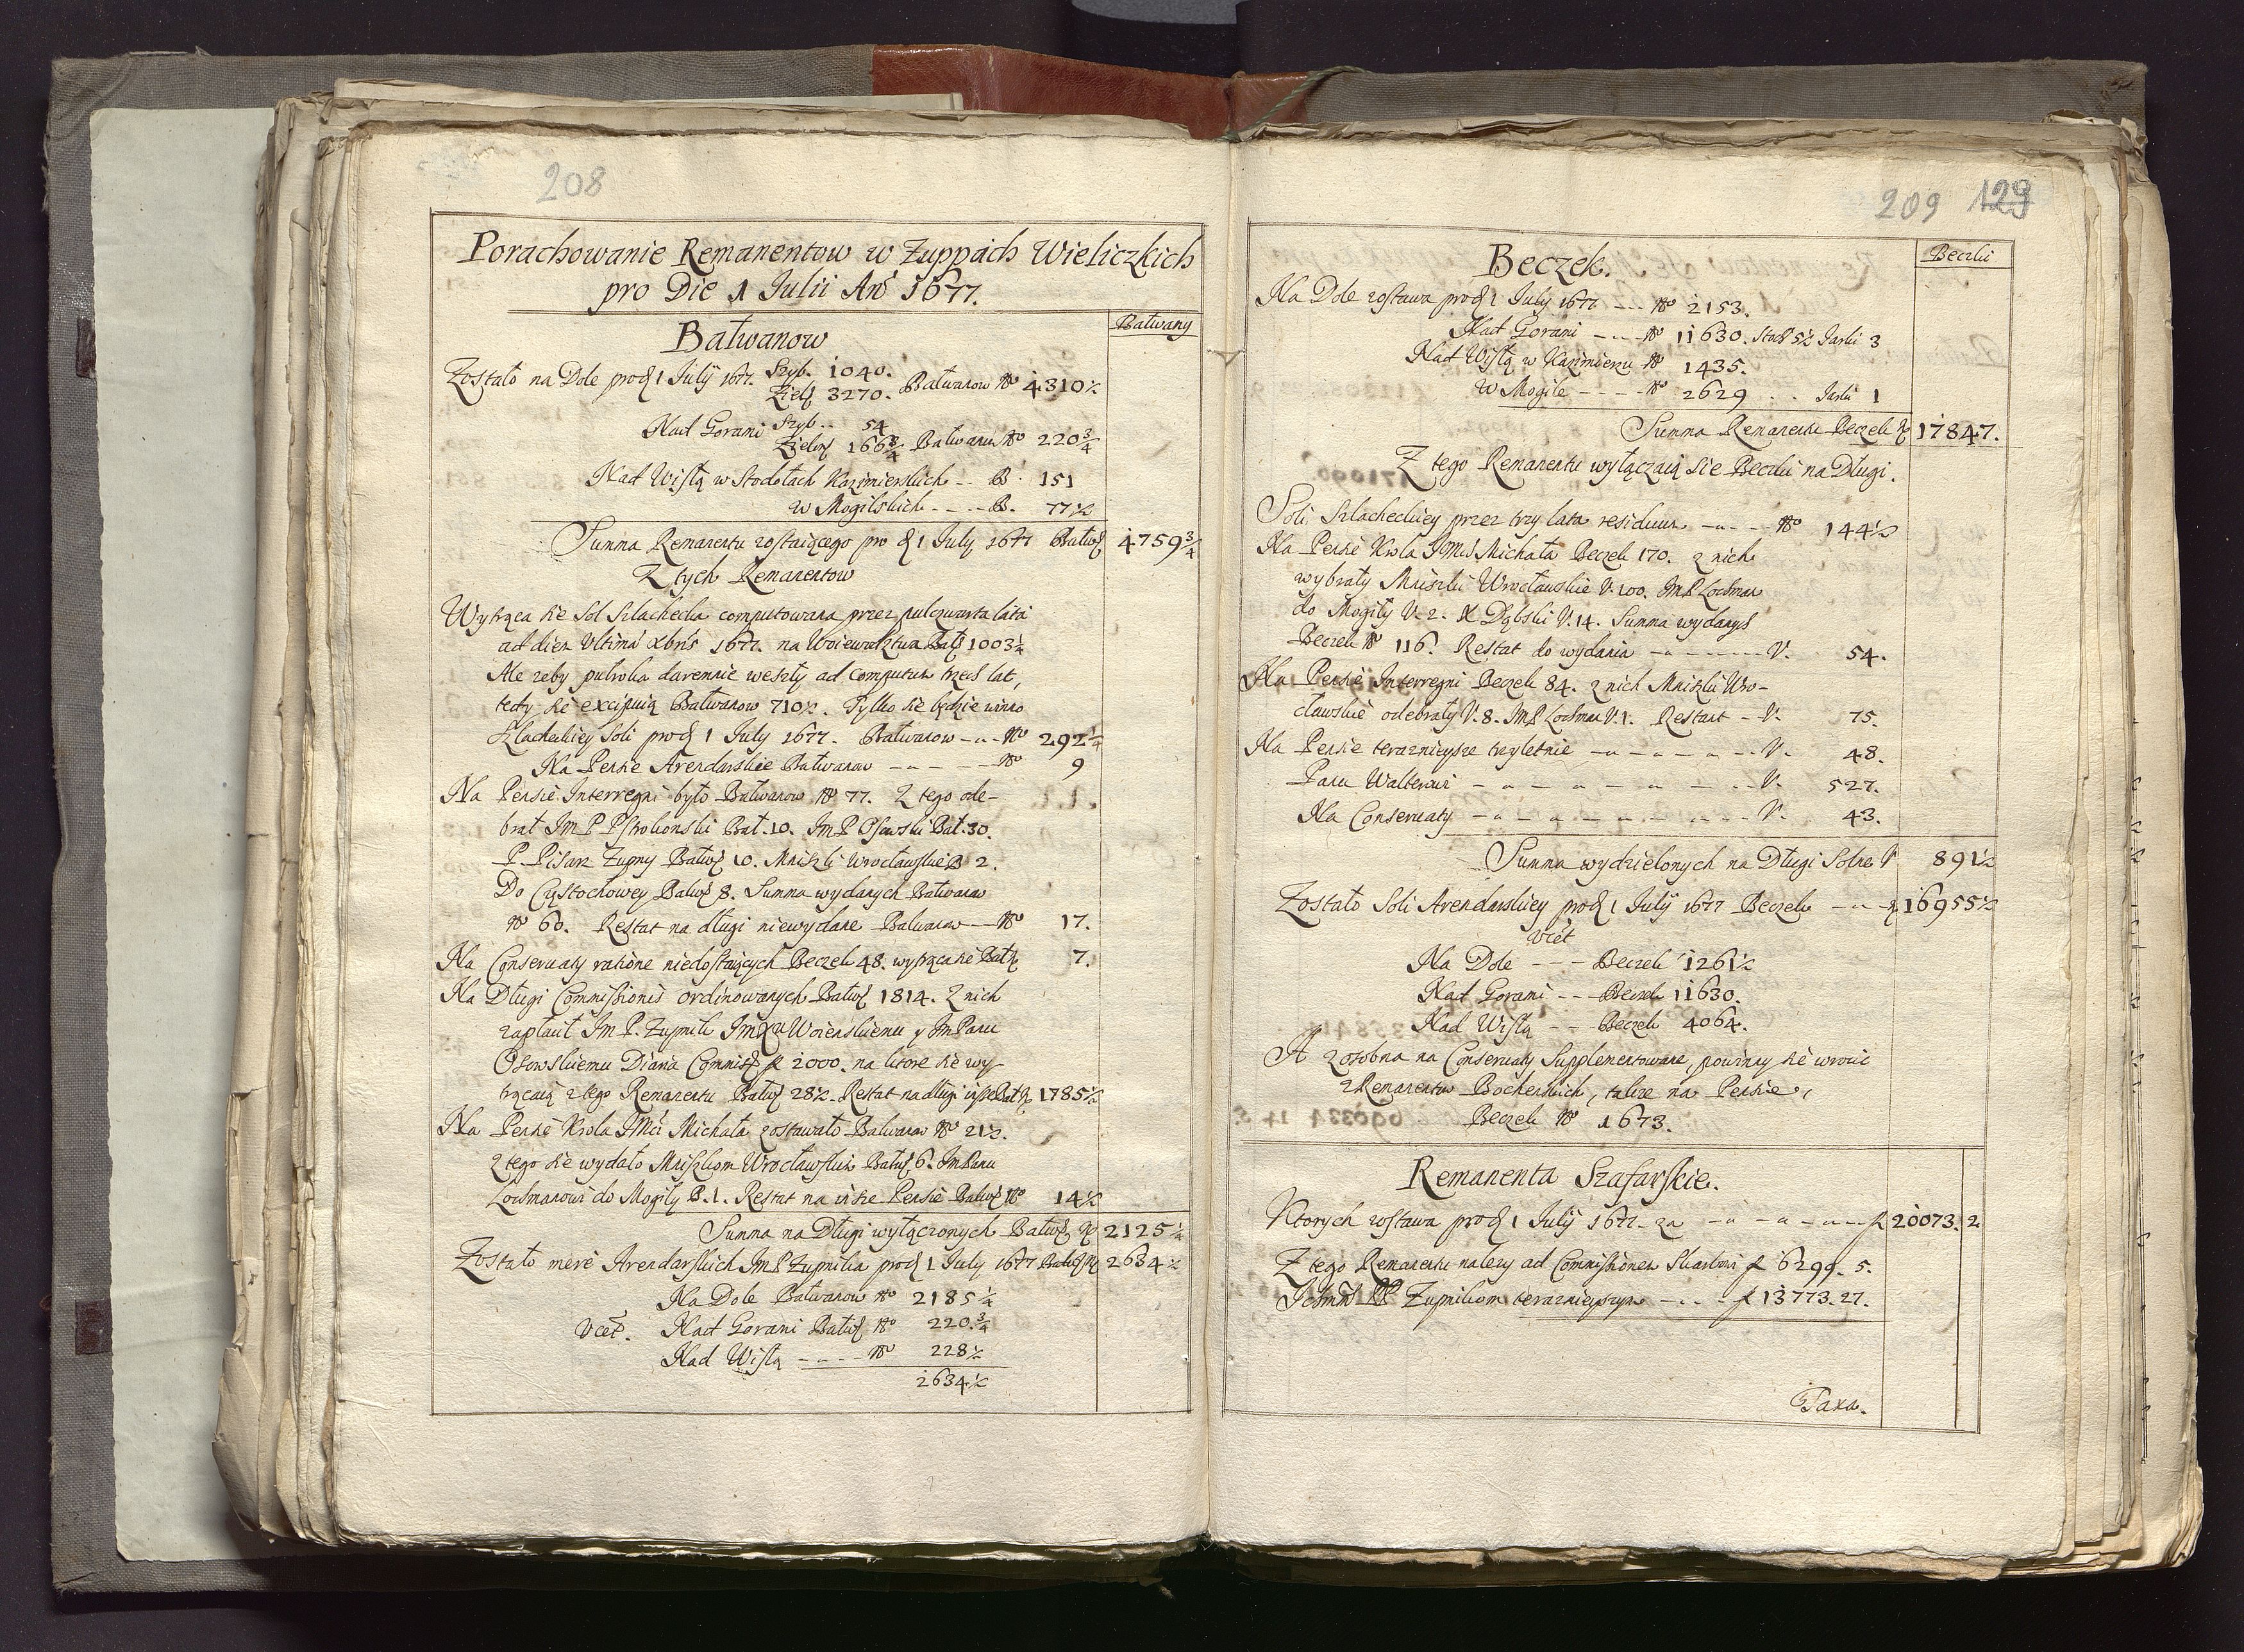 208
Porachowanie Remanentow w Zuppach Wieliczkich
pro Die 1 Julii Anō 1677.
Bałwanow
Bałwany
Zostało na Dole pro d 1 July 1677. Szyb. 1040.
Ziel 3270. Bałwanow No 4310½
Nad Gorami Szyb.. 54
Zielo 166¾ Bałwanow No 220¾
Nad Wisłą w Stodołach Kazimierskich -- B. 151
w Mogilskich ---- B. 77½
Summa Remanentu zostaiącego pro d 1 July 1677 Bałw 4759¾
Z tych Remanentow
Wytrąca sie Sol Szlachecka computowana przez pulczwarta lata
ad diem Ultimā Xbris 1677. na Woiewodztwa Bał 1003¼
Ale zeby pulroka daremnie weszły ad computum trzech lat,
tedy sie excipuią Bałwanow 710½. Tylko sie będzie winno
Szlacheckiey Soli pro d 1 July 1677. Bałwanow --- No 292¼
Na Pensie Arendarskie Bałwanow ----- No 9
Na Pensie Interregni było Bałwanow No 77. Z tego ode-
brał Im P Pstrokonski Bał. 10. Im P Osowski Bał. 30.
P. Pisarz Zupny Bałw 10. Mniszki Wrocławskie B 2.
Do Cząstochowey Bałw 8. Summa wydanych Bałwanow
No 60. Restat na długi niewydane Bałwanow -- No 17.
Na Conseruaty ratione niedostaiących Beczek 48. wytrąca sie Bał 7.
Na Długi Commissionis ordinowanych Bałw 1814. Z nich
zapłacił Im P. Zupnik Im Xu Woienskiemu y Im Panu
Osowskiemu Diana Commiss f 2000. na ktore sie wy-
trącaią z tego Remanentu Bałw 28½. Restat na długi insze Bał 1785½
Na Pensie Krola JMci Michała zostawało Bałwanow No 21½.
z tego sie wydało Mniszkom Wrocławskim Bałw 6. Im Panu
Locmanowi do Mogiły B. 1. Restat na insze Pensie Bałw No 14½
Summa na Długi wyłączonych Bałw No 2125¼
Zostało mere Arendarskich Im P Zupnika pro d 1 July 1677 Bałw No 2634½
Na Dole Bałwanow No 2185¼
Vcet. Nad Gorami Bałw No 220¾
Nad Wisłą ---- No 228½
2634½
209 129
Beczek.
Beczki
Na Dole zostawa pro d 1 July 1677 --- No 2153.
Nad Gorami --- No 11630. Stock 5½ Jarki 3
Nad Wisłą w Kazimierzu No 1435.
w Mogile ---- No 2629 .. Jarki 1
Summa Remanentu Beczek No 17847.
Z tego Remanentu wyłączaią sie Beczki na Długi.
Soli Szlacheckiey przez trzy lata residuum ---- No 144½
Na Pensie Krola JMci Michała Beczek 170. z nich
wybrały Mniszki Wrocławskie V. 100. Im P. Locman
do Mogiły V. 2. X Dąbski V. 14. Summa wydanych
Beczek No 116. Restat do wydania ------ V. 54.
Na Pensie Interregni Beczek 84. z nich Mniszki Wro-
cławskie odebrały V. 8. Im P Locman V. 1. Restant - V. 75.
Na Pensie teraznieysze trzyletnie ------ V. 48.
Panu Walterowi ------- V. 527.
Na Conseruaty ------- V. 43.
Summa wydzielonych na Długi Solne V 891½
Zostało Soli Arendarskiey pro d 1 July 1677 Beczek --- No 16955½
Vcet
Na Dole --- Beczek 1261½
Nad Gorami -- Beczek 11630.
Nad Wisłą -- Beczek 4064.
A zosobna na Conseruaty Supplementowane, powinny sie wrocic
z Remanentow Bochenskich, takze na Pensie,
Beczek No 1673.
Remanenta Szafarskie.
Ktorych zostawa pro d 1 July 1677. za ------ f 20073. 2
Z tego Remanentu nalezy ad Commissionem Skarbowi f 6299. 5.
Ichmm PP Zupnikom teraznieyszym ---- f 13773. 27.
Taxa.